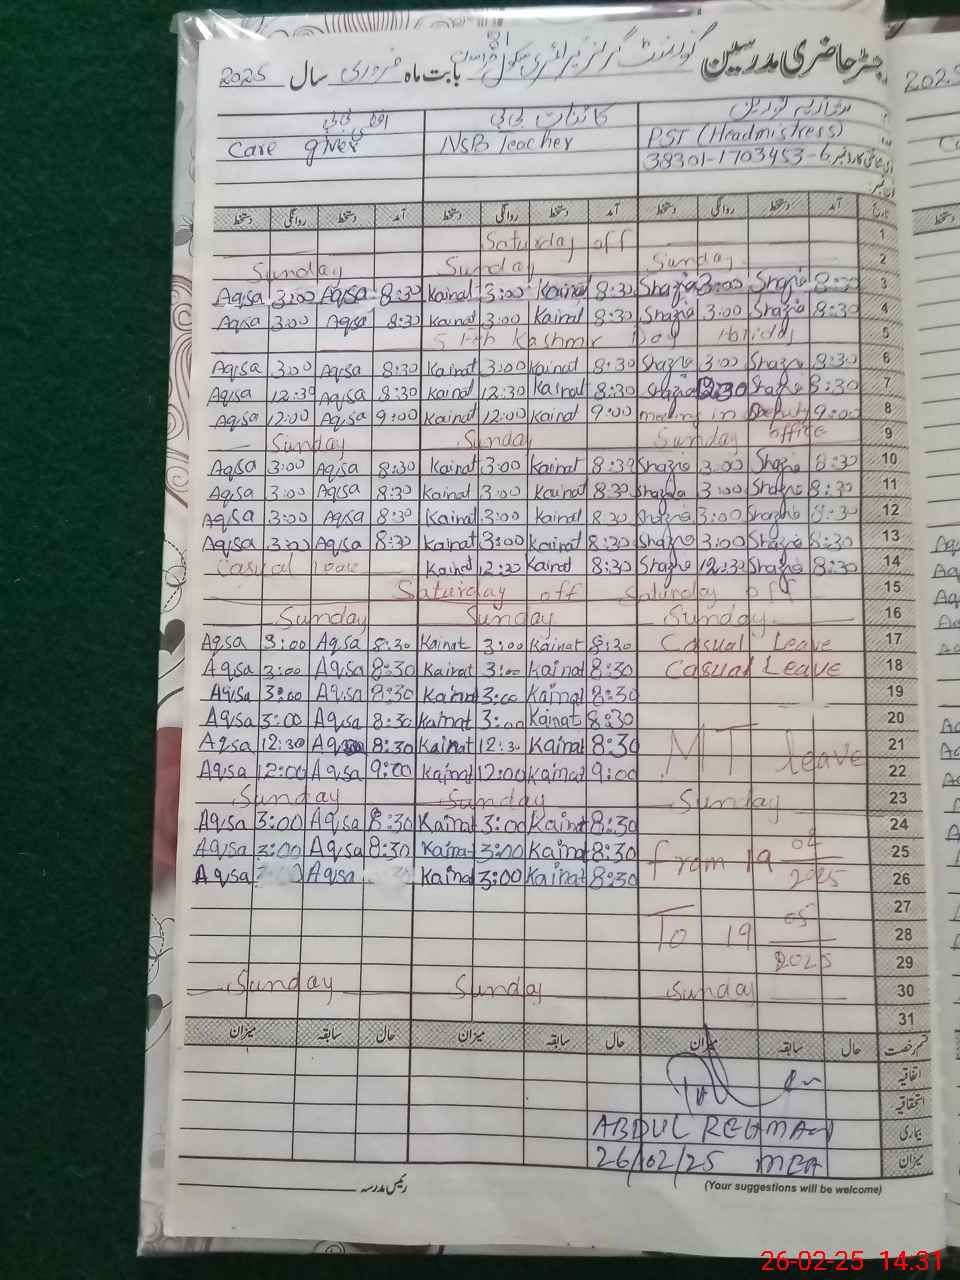 رجسٹر حاضری مدرسین گورنمنٹ گرلز پرائمری سکول بابت ماہ فروری سال 2025
کائنات بی بی اقصٰی بی بی
PST (Headmistress) NSB Teacher Care giver
38301-1703453-6
تاریخ آمد دستخط روانگی دستخط آمد دستخط روانگی دستخط آمد دستخط روانگی دستخط
Saturday off 1
Sunday Sunday Sunday 2
Aqsa 3:00 Aqsa 8:30 Kainat 3:00 Kainat 8:30 Shazia 3:00 Shazia 8:30 3
Aqsa 3:00 Aqsa 8:30 Kainat 3:00 Kainat 8:30 Shazia 3:00 Shazia 8:30 4
5th Kashmr Day Holiday 5
Aqsa 3:00 Aqsa 8:30 Kainat 3:00 Kainat 8:30 Shazia 3:00 Shazia 8:30 6
Aqsa 12:30 Aqsa 8:30 Kainat 12:30 Kainat 8:30 Shazia 12:30 Shazia 8:30 7
Aqsa 12:00 Aqsa 9:00 Kainat 12:00 Kainat 9:00 meeting in Deputy 9:00 8
Sunday Sunday Sunday office 9
Aqsa 3:00 Aqsa 8:30 Kainat 3:00 Kainat 8:30 Shazia 3:00 Shazia 8:30 10
Aqsa 3:00 Aqsa 8:30 Kainat 3:00 Kainat 8:30 Shazia 3:00 Shazia 8:30 11
Aqsa 3:00 Aqsa 8:30 Kainat 3:00 Kainat 8:30 Shazia 3:00 Shazia 8:30 12
Aqsa 3:00 Aqsa 8:30 Kainat 3:00 Kainat 8:30 Shazia 3:00 Shazia 8:30 13
Casual leave Kainat 12:30 Kainat 8:30 Shazia 12:30 Shazia 8:30 14
Saturday off Saturday off 15
Sunday Sunday Sunday 16
Aqsa 3:00 Aqsa 8:30 Kainat 3:00 Kainat 8:30 Casual Leave 17
Aqsa 3:00 Aqsa 8:30 Kainat 3:00 Kainat 8:30 Casual Leave 18
Aqsa 3:00 Aqsa 8:30 Kainat 3:00 Kainat 8:30 19
Aqsa 3:00 Aqsa 8:30 Kainat 3:00 Kainat 8:30 20
Aqsa 12:30 Aqsa 8:30 Kainat 12:30 Kainat 8:30 MT leave 21
Aqsa 12:00 Aqsa 9:00 Kainat 12:00 Kainat 9:00 22
Sunday Sunday Sunday 23
Aqsa 3:00 Aqsa 8:30 Kainat 3:00 Kainat 8:30 24
Aqsa 3:00 Aqsa 8:30 Kainat 3:00 Kainat 8:30 from 19 02 25
Aqsa Aqsa 30 Kainat 3:00 Kainat 8:30 2025 26
27
To 19 05 28
2025 29
Sunday Sunday Sunday 30
31
قسم رخصت حال سابقہ میزان حال سابقہ میزان حال سابقہ میزان
اتفاقیہ
استحقاقیہ
ABDUL REHMAN بیماری
26/02/25 MEA میزان
رئیس مدرسہ
(Your suggestions will be welcome)
26-02-25 14:31